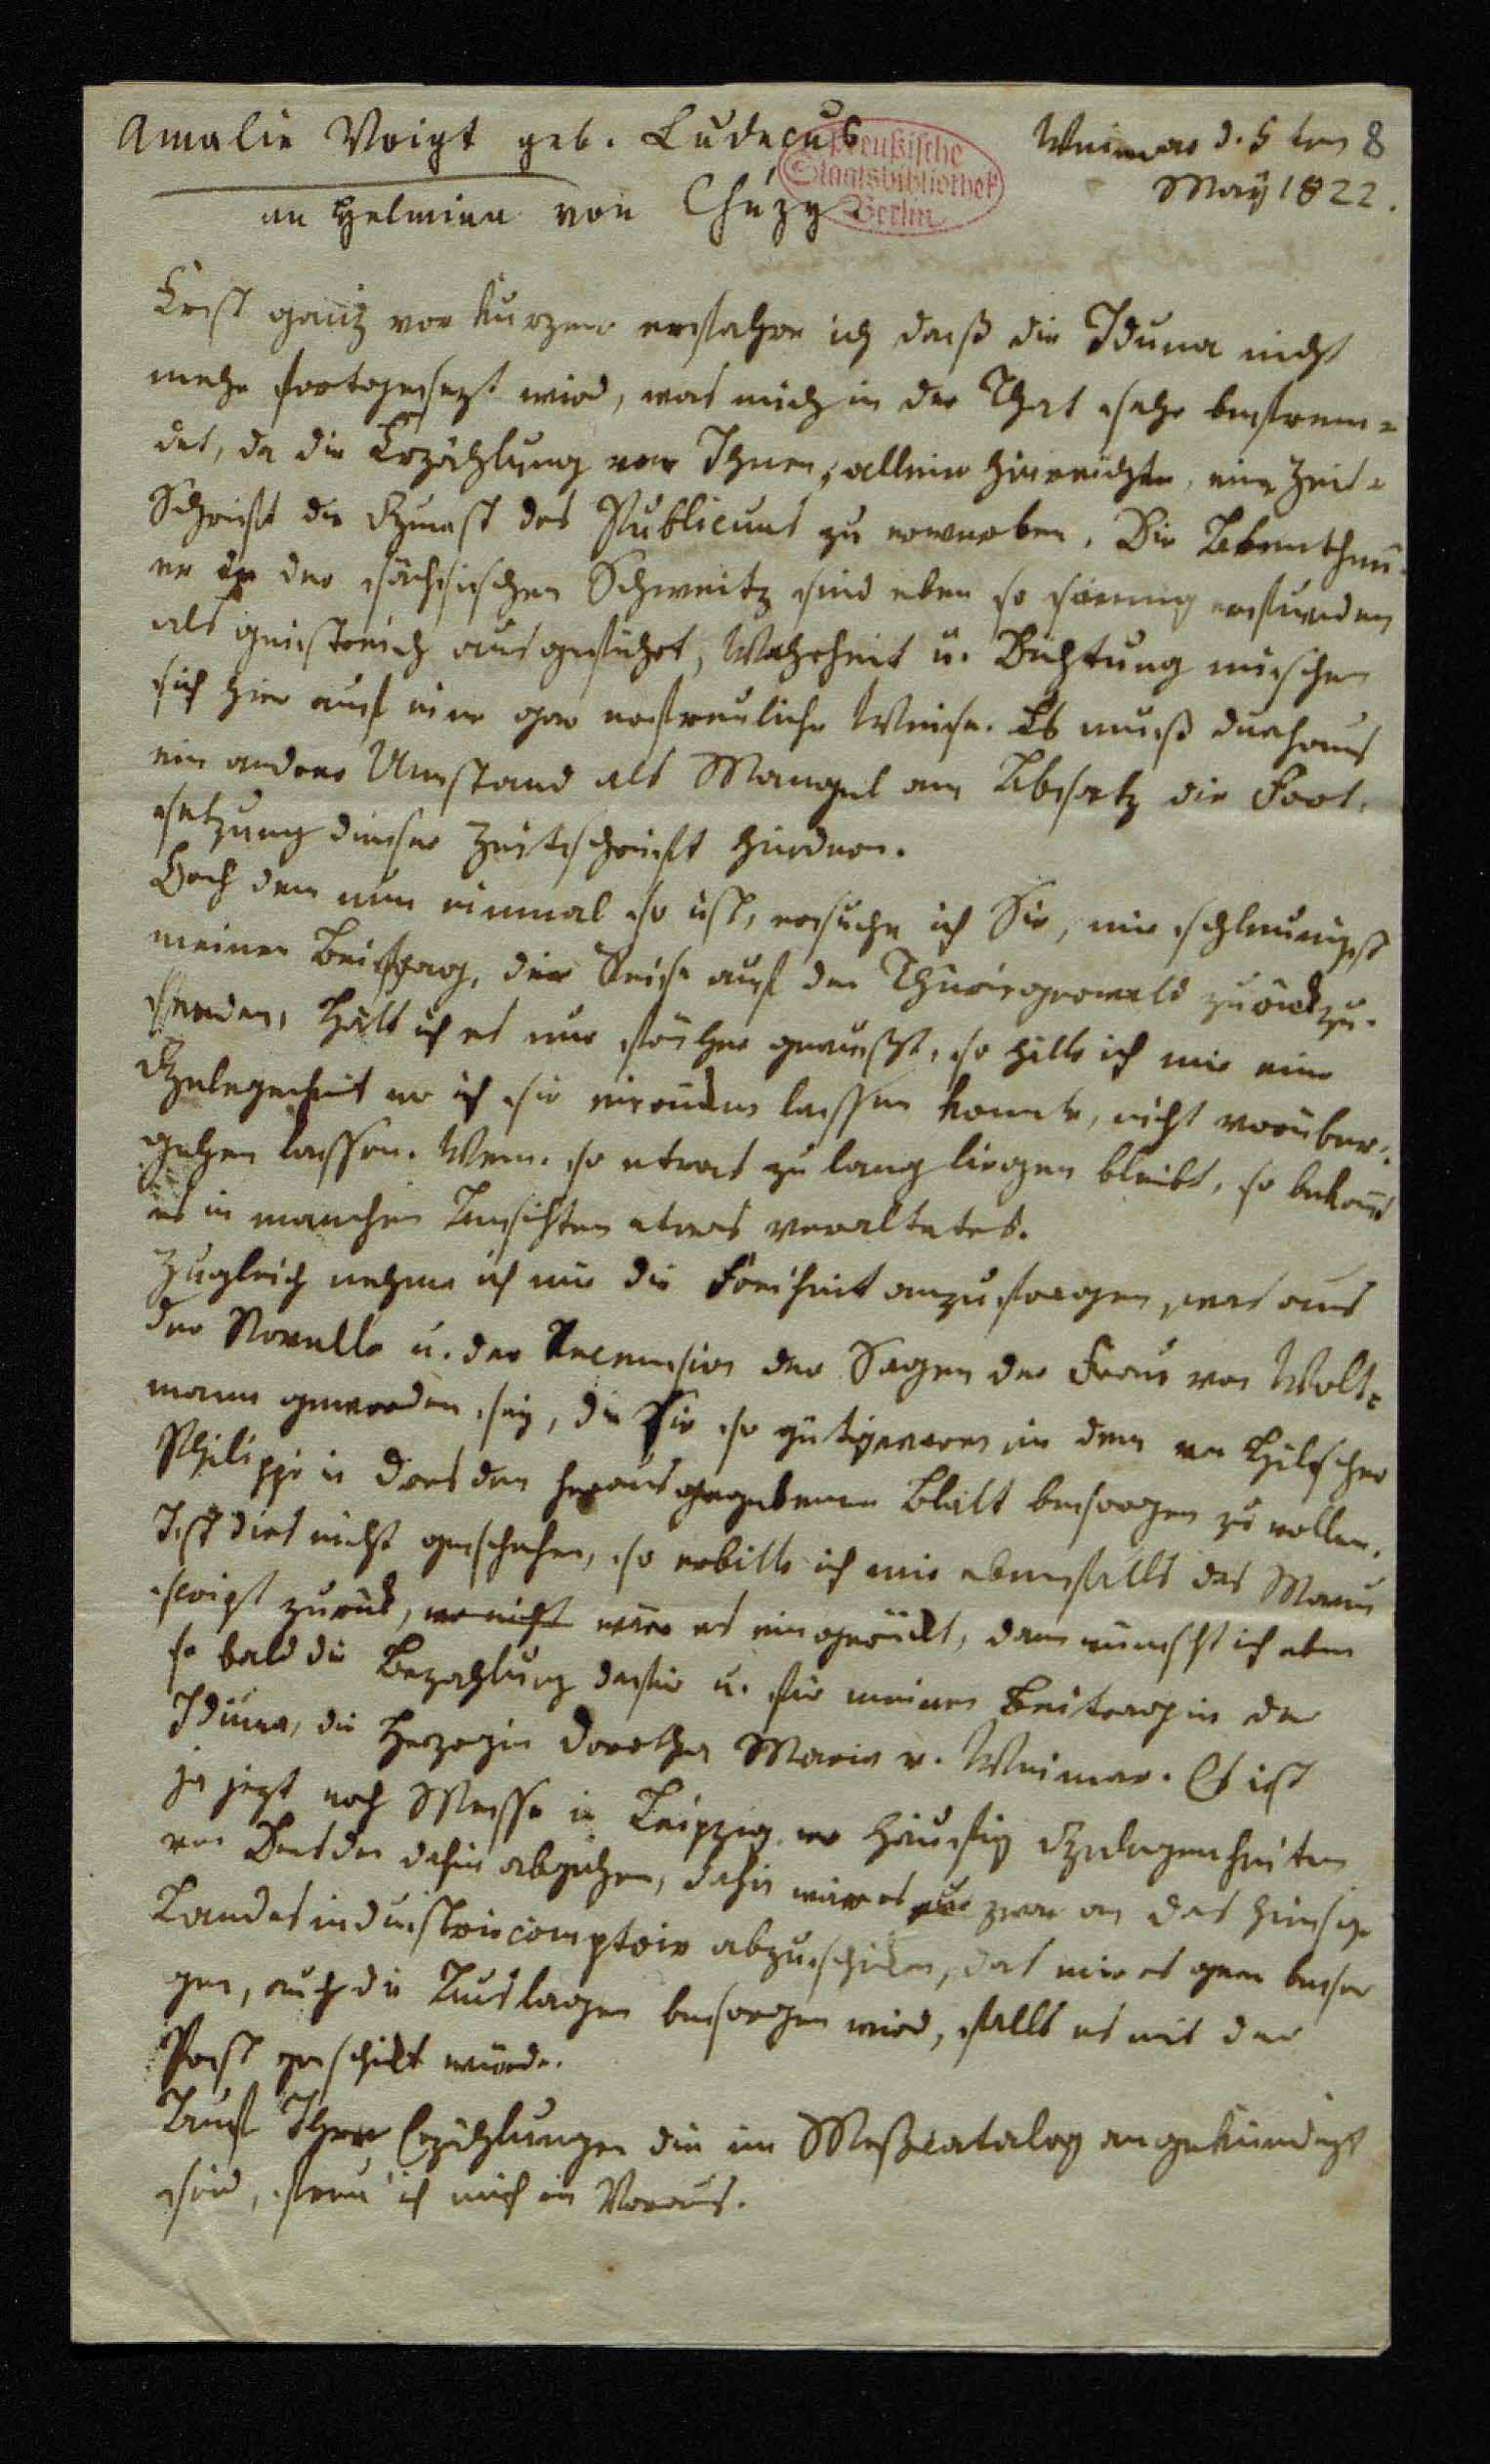 Amalie Voigt geb. Ludecus
an Helmina von Chézy
Weimar d. 5 ten
May 1822.
8
Preußische
Staatsbibliothek
Berlin
Erst ganz vor kurzem erfahre ich daß die Iduna nicht
mehr fortgesezt wird, was mich in der That sehr befrem-
det, da die Erzählung von Ihnen, allein hinreichte, eine Zeit-
Schrift die Gunst des Publicums zu erwerben. Die Abentheu-
er in der sächsischen Schweitz sind eben so sinnig erfunden
als geistreich ausgeführt, Wahrheit u. Dichtung mischen
sich hier auf eine gar erfreuliche Weise. Es muß durchaus
ein andrer Umstand als Mangel am Absatz die Fort-
setzung dieser Zeitschrift hindern.
Doch dem nun einmal so ist, ersuche ich Sie, mir schleunigst
meinen Beitrag, die Reise auf den Thüringerwald zurückzu-
senden, Hätt ich es nur früher gewußt, so hätte ich mir eine
Gelegenheit wo ich sie einrücken lassen konnte, nicht vorüber-
gehen lassen. Wenn so etwas zu lang liegen bleibt, so bekomt
es in manchen Ansichten etwas veraltetes.
Zugleich nehme ich mir die Freiheit anzufragen, was aus
der Novelle u. der Recension der Sagen der Frau von Wolt-
mann geworden sey, die Sie so gütig waren in dem von Hilscher
Philippi in Dresden herausgegebenen Blatt besorgen zu wollen.
Ist dies nicht geschehen, so erbitte ich mir ebenfalls das Manu
script zurück, wo nicht wär es eingerückt, dann wünscht ich eben
so bald die Bezahlung dafür u. für meinen Beitrag in der
Iduna, die Herzogin Dorothea Maria v. Weimar. Es ist
ja jezt noch Messe in Leipzig, wo häufig Gelegenheiten
von Dresden dahin abgehen, dahin wäre es zwar an das hiesige
Landesindustriecomptoir abzuschicken, das mir es gern besor
gen, auch die Auslagen besorgen wird, falls es mit der
Post geschikt würde.
Auf Ihre Erzählungen die im Meßcatalog angekündigt
sind, freu' ich mich im Voraus.